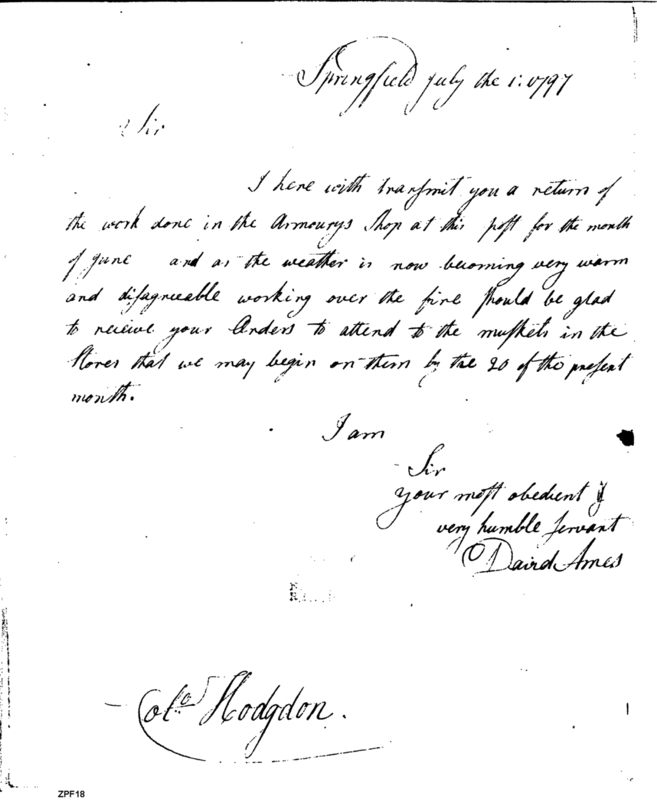 Springfield July the 1: 1797
Sir
I here with transmit you a return of
the work done in the Armourys Shop at this post for the month
of June and as the weather is now becoming very warm
and disagreeable working over the fire should be glad
to receive your Orders to attend to the muskets in the
stores that we may begin on them by the 20 of the present
month.
I am
Sir
your most obedient &
very humble servant
David Ames
Colo Hodgdon.
ZPF18